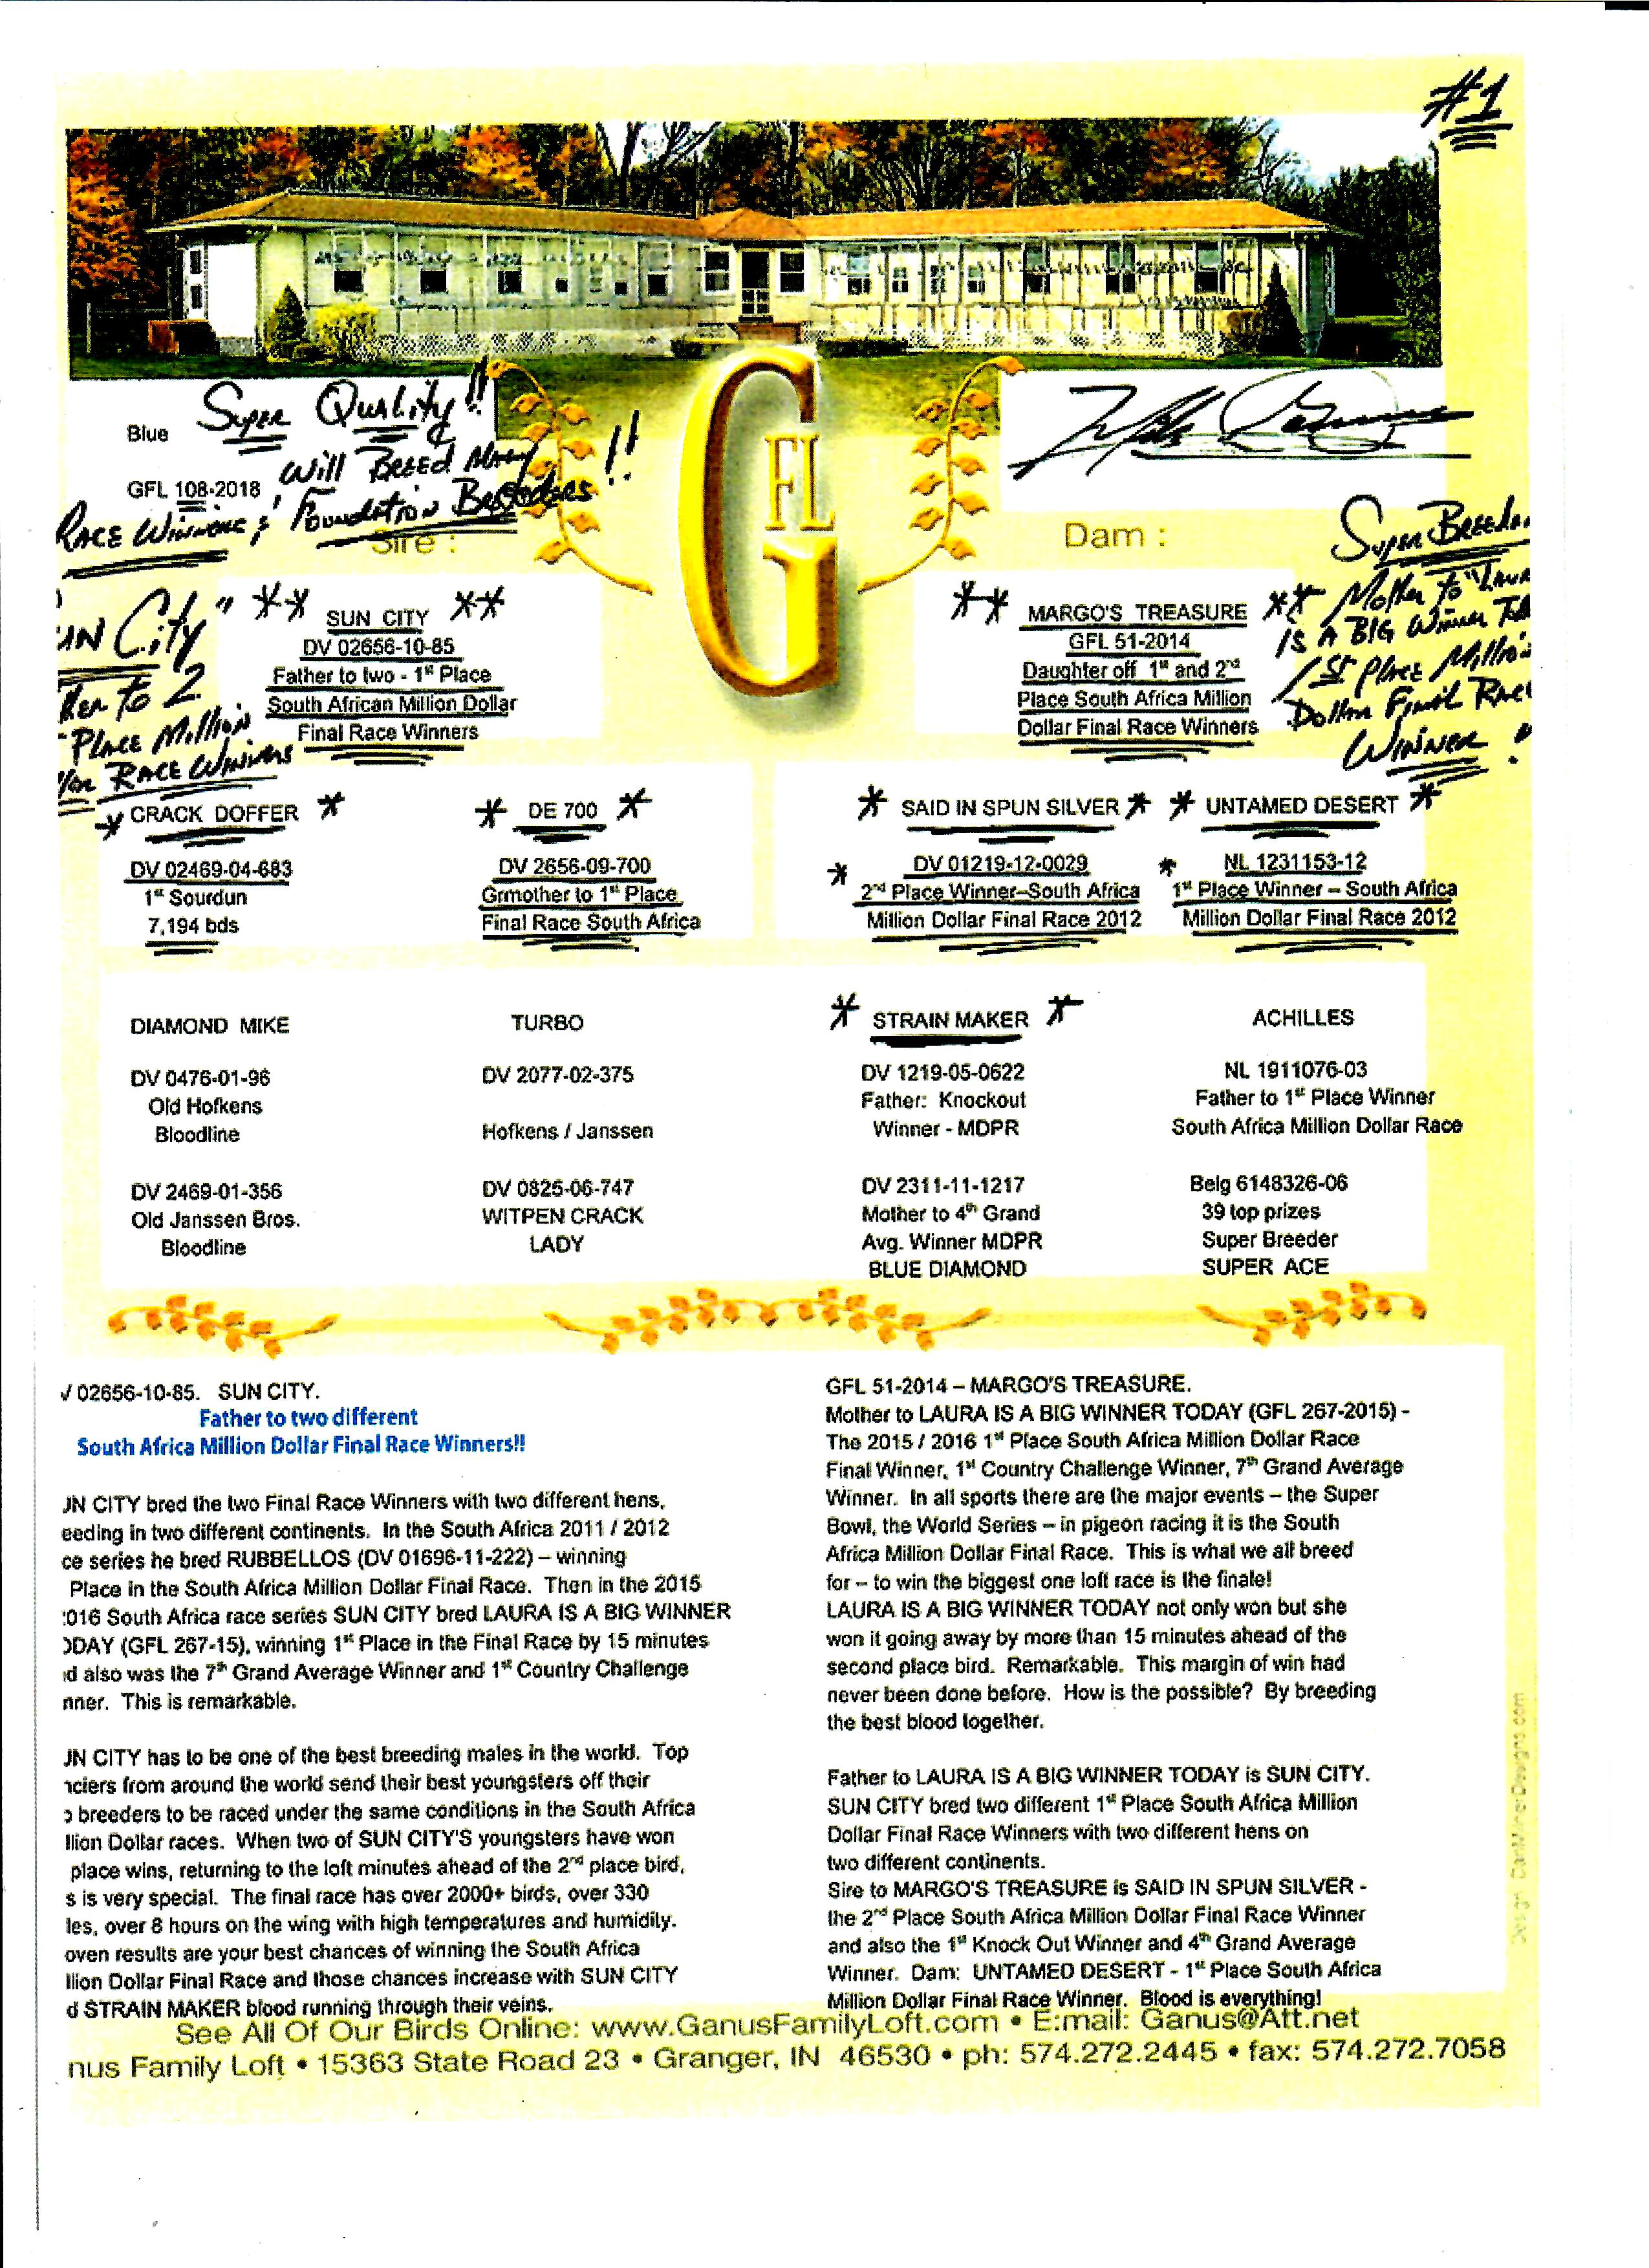 #1
Blue
Super Quality!!
GFL 108-2018
Will Breed Many
Race Winners & Foundation Breeders!!
Sire :
Dam :
"Sun City"
to 2
Place Million
Race Winners
** SUN CITY **
DV 02656-10-85
Father to two - 1st Place
South African Million Dollar
Final Race Winners
GFL
** MARGO'S TREASURE **
GFL 51-2014
Daughter off 1st and 2nd
Place South Africa Million
Dollar Final Race Winners
Super Breeder
Mother to "Laura
Is A BIG Winner
1st Place Million
Dollar Final Race
Winner!
* CRACK DOFFER *
DV 02469-04-683
1st Sourdun
7,194 bds
* DE 700 *
DV 2656-09-700
Grmother to 1st Place
Final Race South Africa
* SAID IN SPUN SILVER *
DV 01219-12-0029
* 2nd Place Winner–South Africa
Million Dollar Final Race 2012
* UNTAMED DESERT *
* NL 1231153-12
1st Place Winner – South Africa
Million Dollar Final Race 2012
DIAMOND MIKE
DV 0476-01-96
Old Hofkens
Bloodline
DV 2469-01-356
Old Janssen Bros.
Bloodline
TURBO
DV 2077-02-375
Hofkens / Janssen
DV 0825-06-747
WITPEN CRACK
LADY
* STRAIN MAKER *
DV 1219-05-0622
Father: Knockout
Winner - MDPR
DV 2311-11-1217
Mother to 4th Grand
Avg. Winner MDPR
BLUE DIAMOND
ACHILLES
NL 1911076-03
Father to 1st Place Winner
South Africa Million Dollar Race
Belg 6148326-06
39 top prizes
Super Breeder
SUPER ACE
V 02656-10-85. SUN CITY.
Father to two different
South Africa Million Dollar Final Race Winners!!
UN CITY bred the two Final Race Winners with two different hens,
eeding in two different continents. In the South Africa 2011 / 2012
ce series he bred RUBBELLOS (DV 01696-11-222) – winning
Place in the South Africa Million Dollar Final Race. Then in the 2015
2016 South Africa race series SUN CITY bred LAURA IS A BIG WINNER
ODAY (GFL 267-15), winning 1st Place in the Final Race by 15 minutes
d also was the 7th Grand Average Winner and 1st Country Challenge
nner. This is remarkable.
UN CITY has to be one of the best breeding males in the world. Top
nciers from around the world send their best youngsters off their
o breeders to be raced under the same conditions in the South Africa
llion Dollar races. When two of SUN CITY'S youngsters have won
place wins, returning to the loft minutes ahead of the 2nd place bird,
s is very special. The final race has over 2000+ birds, over 330
les, over 8 hours on the wing with high temperatures and humidity.
oven results are your best chances of winning the South Africa
llion Dollar Final Race and those chances increase with SUN CITY
d STRAIN MAKER blood running through their veins.
GFL 51-2014 – MARGO'S TREASURE.
Mother to LAURA IS A BIG WINNER TODAY (GFL 267-2015) -
The 2015 / 2016 1st Place South Africa Million Dollar Race
Final Winner, 1st Country Challenge Winner, 7th Grand Average
Winner. In all sports there are the major events – the Super
Bowl, the World Series – in pigeon racing it is the South
Africa Million Dollar Final Race. This is what we all breed
for – to win the biggest one loft race is the finale!
LAURA IS A BIG WINNER TODAY not only won but she
won it going away by more than 15 minutes ahead of the
second place bird. Remarkable. This margin of win had
never been done before. How is the possible? By breeding
the best blood together.
Father to LAURA IS A BIG WINNER TODAY is SUN CITY.
SUN CITY bred two different 1st Place South Africa Million
Dollar Final Race Winners with two different hens on
two different continents.
Sire to MARGO'S TREASURE is SAID IN SPUN SILVER -
the 2nd Place South Africa Million Dollar Final Race Winner
and also the 1st Knock Out Winner and 4th Grand Average
Winner. Dam: UNTAMED DESERT - 1st Place South Africa
Million Dollar Final Race Winner. Blood is everything!
See All Of Our Birds Online: www.GanusFamilyLoft.com • E:mail: Ganus@Att.net
nus Family Loft • 15363 State Road 23 • Granger, IN 46530 • ph: 574.272.2445 • fax: 574.272.7058